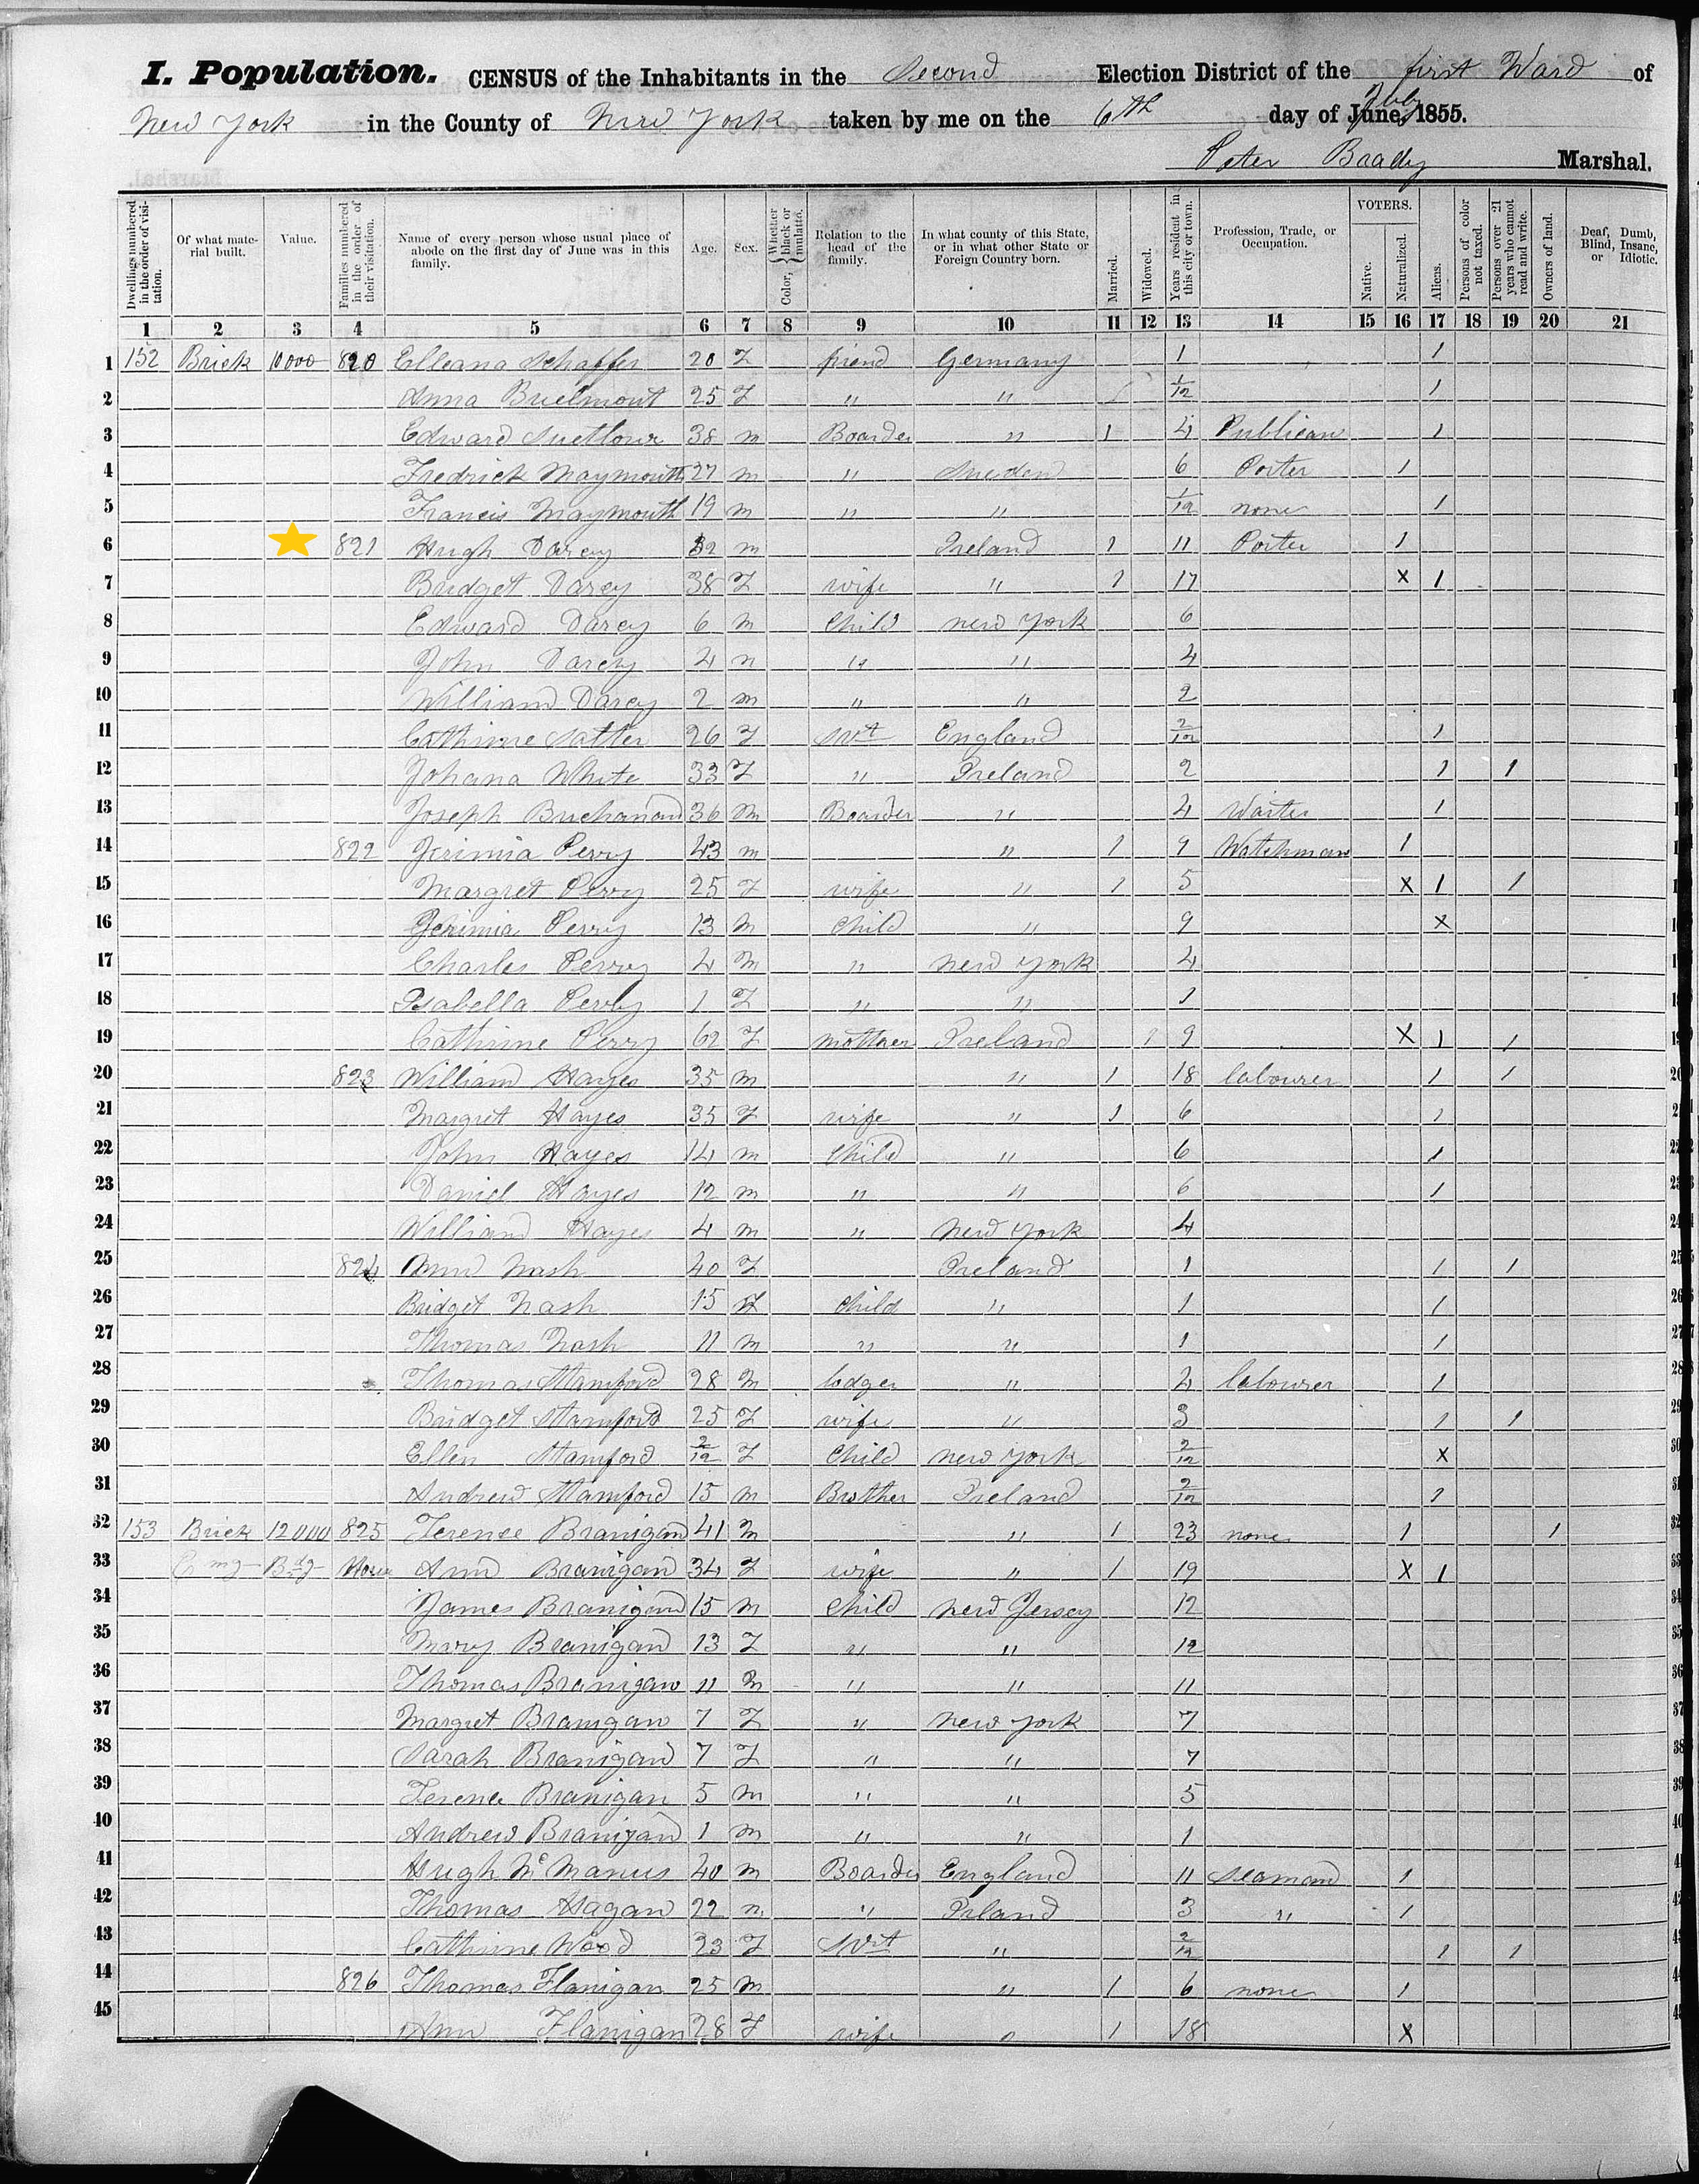 I. Population. CENSUS of the Inhabitants in the Second Election District of the first Ward of
New York in the County of New York taken by me on the 6th day of June, 1855.
Peter Brady Marshal.
Dwellings numbered in the order of visitation. Of what material built. Value. Families numbered in the order of their visitation. Name of every person whose usual place of abode on the first day of June was in this family. Age. Sex. Color, { Whether black or mulatto. Relation to the head of the family. In what county of this State, or in what other State or Foreign Country born. Married. Widowed. Years resident in this city or town. Profession, Trade, or Occupation. VOTERS. Native. Naturalized. Aliens. Persons of color not taxed. Persons over 21 years who cannot read and write. Owners of land. Deaf, Dumb, Blind, Insane, or Idiotic.
1 2 3 4 5 6 7 8 9 10 11 12 13 14 15 16 17 18 19 20 21
1 152 Brick 10000 820 Elleana Schaffer 20 F friend Germany 1 1
2 Anna Buelmont 25 F " " 1/12 1
3 Edward 38 m Boarder " 1 4 Publican 1
4 Fredrick Maymouth 27 m " Sweden 6 Porter 1
5 Francis Maymouth 19 m " " 1/12 none 1
6 821 Hugh Darcy m Ireland 1 11 Porter 1
7 Bridget Darcy 38 F wife " 1 17 x 1
8 Edward Darcy 6 m Child new York 6
9 John Darcy 4 m " " 4
10 William Darcy 2 m " " 2
11 Cathrine Satter 26 F Svt England 2/12 1
12 Johana White 33 F " Ireland 2 1 1
13 Joseph Buchanan 36 m Boarder " 4 Waiter 1
14 822 Jerimia Perry 43 m " 1 9 Watchman 1
15 Margret Perry 25 F wife " 1 5 x 1 1
16 Jerimia Perry 13 m Child " 9 x
17 Charles Perry 4 m " new York 4
18 Isabella Perry 1 F " " 1
19 Cathrine Perry 62 F mother Ireland 1 9 x 1 1
20 823 William Hayes 35 m " 1 18 labourer 1 1
21 Margret Hayes 35 F wife " 1 6 1
22 John Hayes 14 m Child " 6 1
23 Daniel Hayes 12 m " " 6 1
24 William Hayes 4 m " new York 4
25 824 Ann Nash 40 F Ireland 1 1 1
26 Bridget Nash 15 F child " 1 1
27 Thomas Nash 11 m " " 1 1
28 Thomas Stamford 28 m lodger " 2 labourer 1
29 Bridget Stamford 25 F wife " 3 1 1
30 Ellen Stamford 2/12 F Child new York 2/12 x
31 Andrew Stamford 15 m Brother Ireland 2/12 1
32 153 Brick 12000 825 Terence Branigan 41 m " 1 23 none 1 1
33 Ann Branigan 34 F wife " 1 19 x 1
34 James Branigan 15 m Child new Jersey 12
35 Mary Branigan 13 F " " 12
36 Thomas Branigan 11 m " " 11
37 Margret Branigan 7 F " new York 7
38 Sarah Branigan 7 F " " 7
39 Terence Branigan 5 m " " 5
40 Andrew Branigan 1 m " " 1
41 Hugh McManus 40 m Boarder England 11 seaman 1
42 Thomas Hagan 22 m " Irland 3 " 1
43 Cathrine Wood 23 F Svt " 2/12 1 1
44 826 Thomas Flanigan 25 m " 1 6 none 1
45 Ann Flanigan 28 F wife " 1 18 x